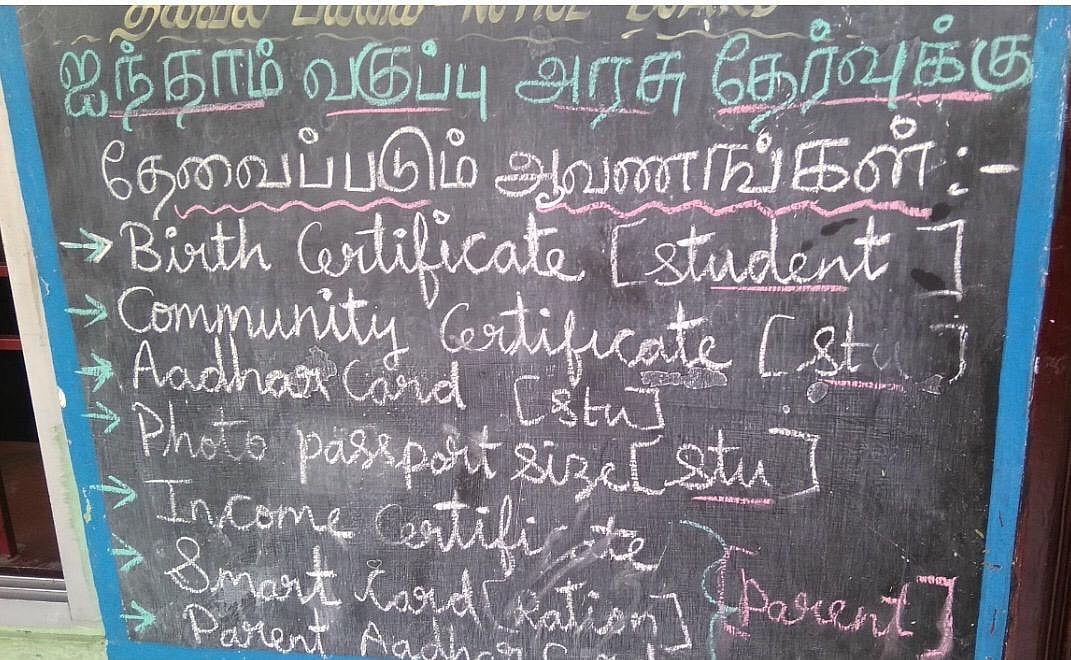 தகவல் பலகை NOTICE BOARD
ஐந்தாம் வகுப்பு அரசு தேர்வுக்கு
தேவைப்படும் ஆவணங்கள் :-
→ Birth Certificate [student]
→ Community Certificate [stu]
→ Aadhar Card [stu]
→ Photo passport size [stu]
→ Income Certificate
→ Smart Card [Ration] [Parent]
→ Parent Aadhar Card